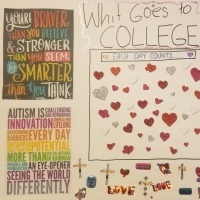 YOU'RE BRAVER
THAN YOU BELIEVE
& STRONGER
THAN YOU SEEM
& SMARTER
than You THINK
Whit Goes to
COLLEGE
EACH DAY COUNTS...
AUTISM IS CHALLENGING
INNOVATION
EVERY DAY
POTENTIAL
MORE THAN
AN EYE-OPENER
SEEING THE WORLD
DIFFERENTLY
LOVE
LOVE